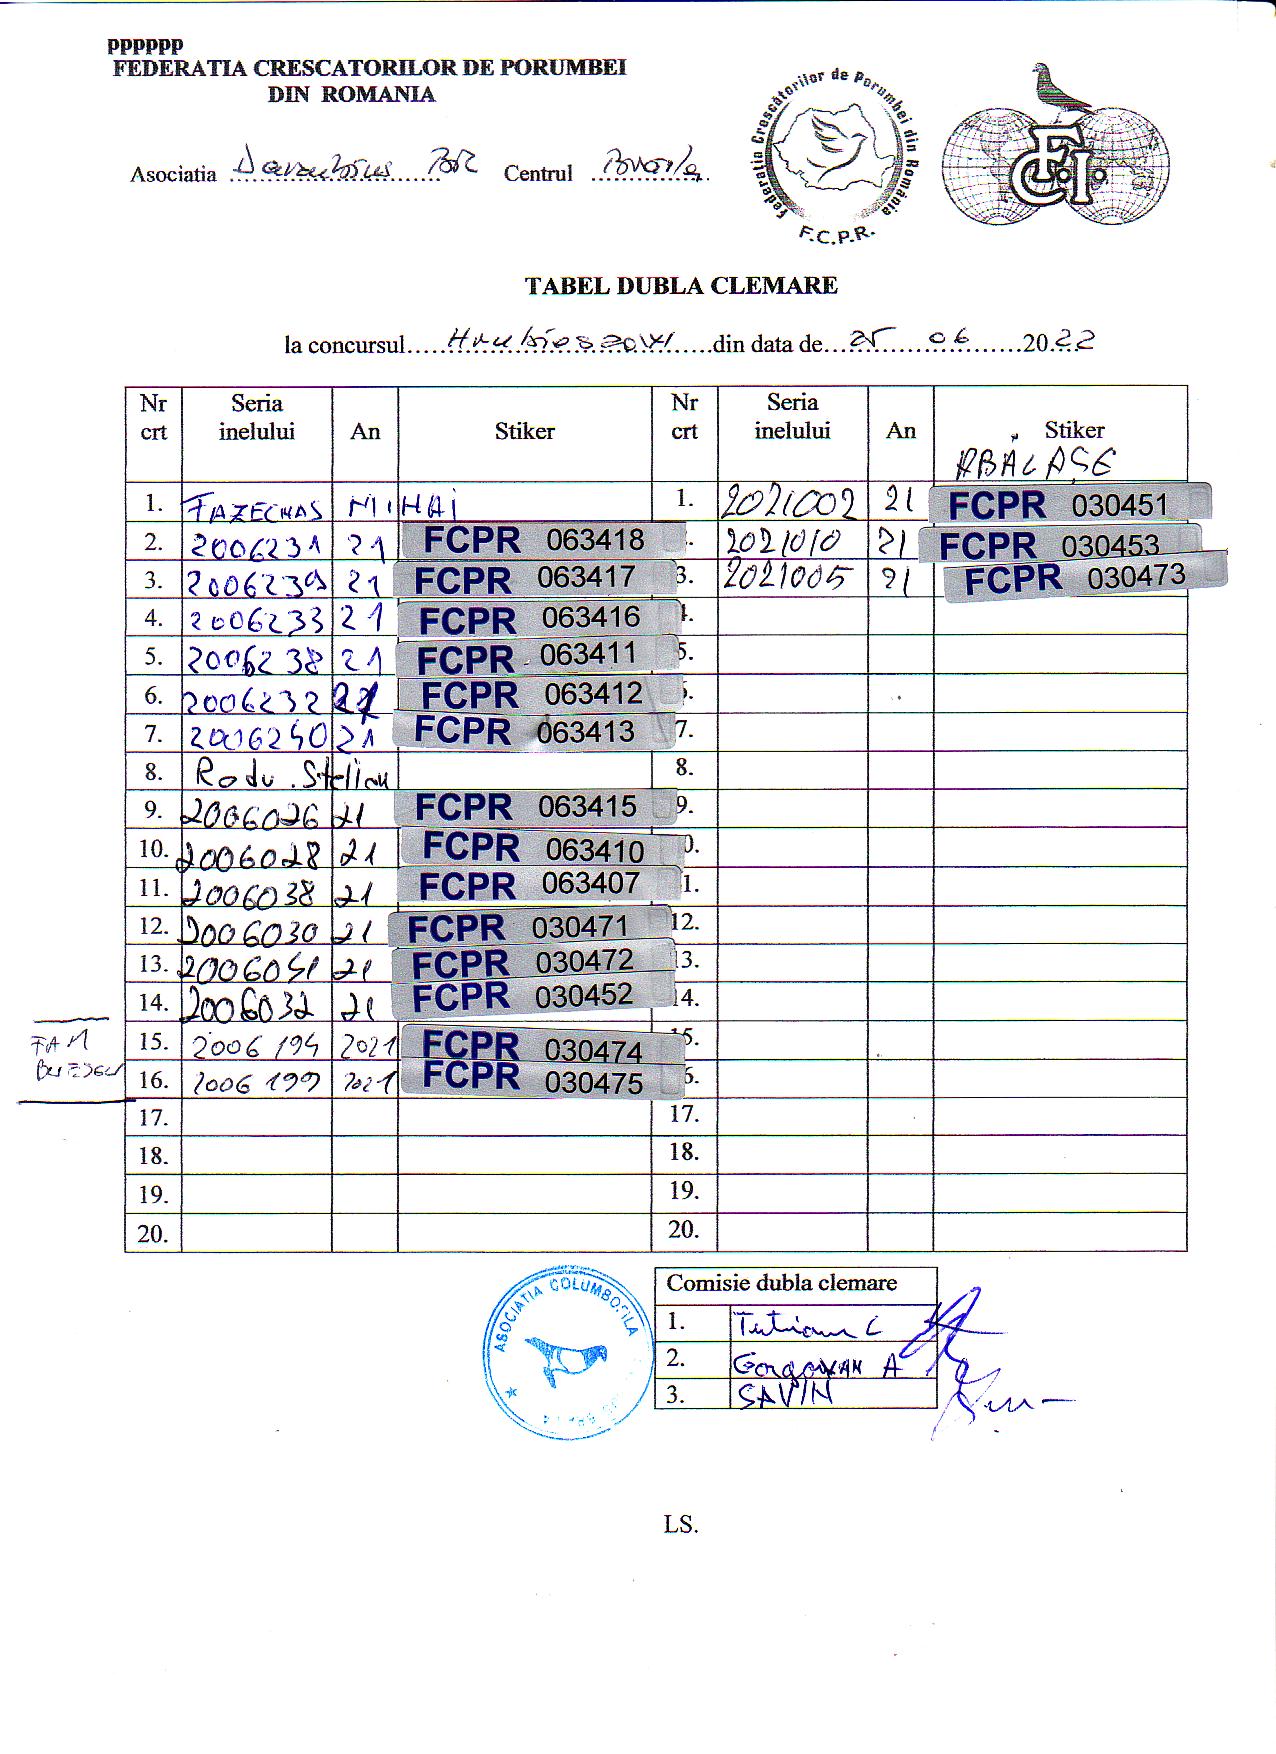 pppppp
FEDERATIA CRESCATORILOR DE PORUMBEI
DIN ROMANIA
Federatia Crescătorilor de Porumbei din România
F.C.P.R.
F.C.I.
Asociatia Centrul
TABEL DUBLA CLEMARE
la concursul Hrubieszow din data de 25 06 2022
Nr crt Seria inelului An Stiker Nr crt Seria inelului An Stiker
ARBĂLAȘE
1. FAZECHAS MIHAI 1. 2021002 21 FCPR 030451
2. 2006231 21 FCPR 063418 2021010 21 FCPR 030453
3. 2006239 21 FCPR 063417 3. 2021005 21 FCPR 030473
4. 2006233 21 FCPR 063416 4.
5. 2006238 21 FCPR 063411 5.
6. 2006232 21 FCPR 063412
7. 2006240 21 FCPR 063413 7.
8. Radu Stelian 8.
9. 2006026 21 FCPR 063415 9.
10. 2006028 21 FCPR 063410 0.
11. 2006038 21 FCPR 063407 1.
12. 2006030 21 FCPR 030471 12.
13. 2006051 21 FCPR 030472 13.
14. 2006032 21 FCPR 030452 14.
15. 2006194 2021 FCPR 030474 5.
16. 2006199 2021 FCPR 030475 6.
17. 17.
18. 18.
19. 19.
20. 20.
Comisie dubla clemare
1.
2. Gorgovan A
3. SAVIN
ASOCIATIA COLUMBOFILA
LS.